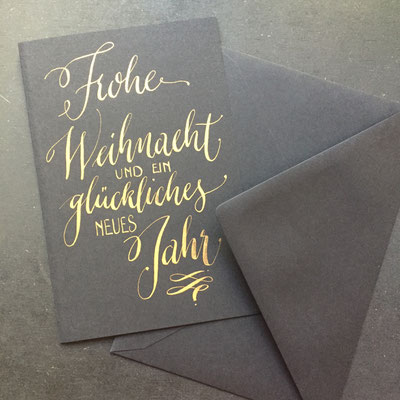 Frohe
Weihnacht
UND EIN
glückliches
NEUES
Jahr